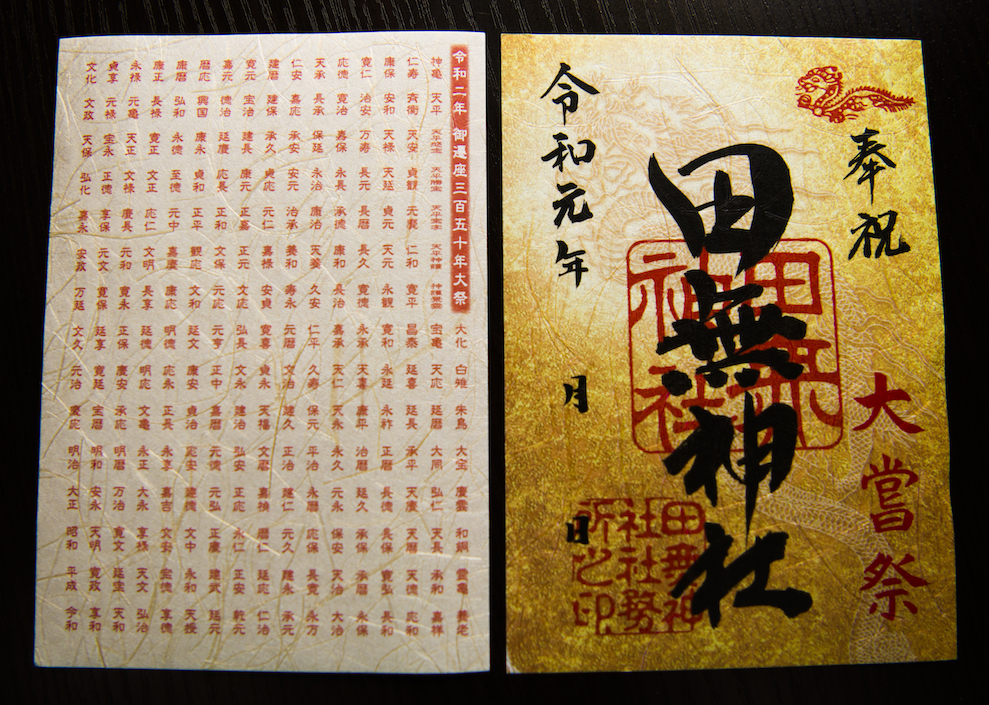 奉祝
大嘗祭
田無神社
令和元年 月 日
田無神社
田無神
社社務
所之印
令和二年 御遷座三百五十年大祭
大化 白雉 朱鳥 大宝 慶雲 和銅 霊亀 養老
神亀 天平 天平感宝 天平勝宝 天平宝字 天平神護 神護景雲 宝亀 天応 延暦 大同 弘仁 天長 承和 嘉祥
仁寿 斉衡 天安 貞観 元慶 仁和 寛平 昌泰 延喜 延長 承平 天慶 天暦 天徳 応和
康保 安和 天禄 天延 貞元 天元 永観 寛和 永延 永祚 正暦 長徳 長保 寛弘 長和
寛仁 治安 万寿 長元 長暦 長久 寛徳 永承 天喜 康平 治暦 延久 承保 承暦 永保
応徳 寛治 嘉保 永長 承徳 康和 長治 嘉承 天仁 天永 永久 元永 保安 天治 大治
天承 長承 保延 永治 康治 天養 久安 仁平 久寿 保元 平治 永暦 応保 長寛 永万
仁安 嘉応 承安 安元 治承 養和 寿永 元暦 文治 建久 正治 建仁 元久 建永 承元
建暦 建保 承久 貞応 元仁 嘉禄 安貞 寛喜 貞永 天福 文暦 嘉禎 暦仁 延応 仁治
寛元 宝治 建長 康元 正嘉 正元 文応 弘長 文永 建治 弘安 正応 永仁 正安 乾元
嘉元 徳治 延慶 応長 正和 文保 元応 元亨 正中 嘉暦 元徳 元弘 正慶 建武 延元
暦応 興国 康永 貞和 正平 観応 文和 延文 康安 貞治 応安 建徳 文中 永和 天授
康暦 弘和 永徳 至徳 元中 嘉慶 康応 明徳 応永 正長 永享 嘉吉 文安 宝徳 享徳
康正 長禄 寛正 文正 応仁 文明 長享 延徳 明応 文亀 永正 大永 享禄 天文 弘治
永禄 元亀 天正 文禄 慶長 元和 寛永 正保 慶安 承応 明暦 万治 寛文 延宝 天和
貞享 元禄 宝永 正徳 享保 元文 寛保 延享 寛延 宝暦 明和 安永 天明 寛政 享和
文化 文政 天保 弘化 嘉永 安政 万延 文久 元治 慶応 明治 大正 昭和 平成 令和